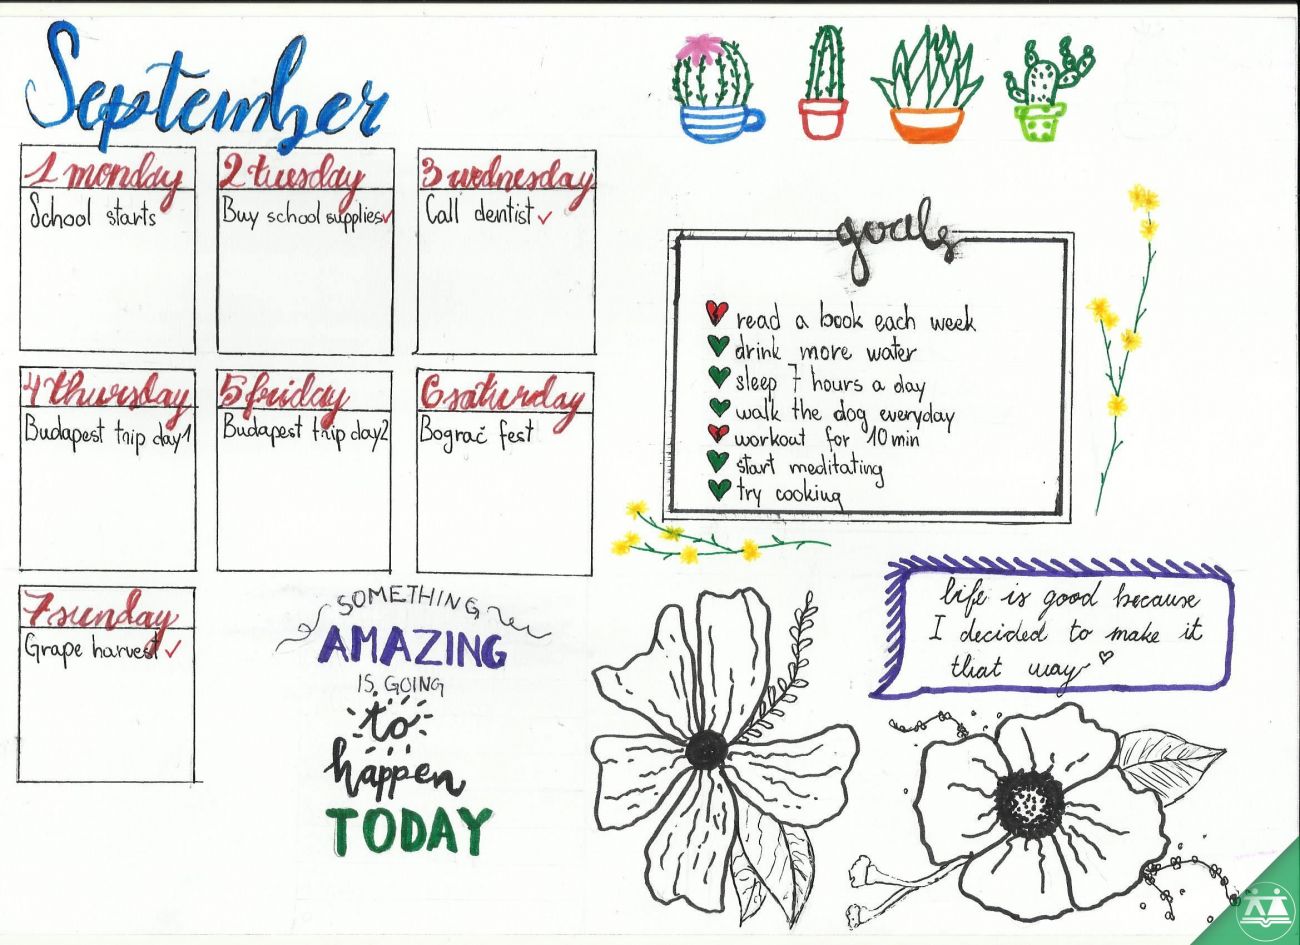 September
1 monday
School starts
2 tuesday
Buy school supplies
3 wednesday
Call dentist
4 thursday
Budapest trip day 1
5 friday
Budapest trip day 2
6 saturday
Bograč fest
7 sunday
Grape harvest
SOMETHING
AMAZING
IS GOING
to
happen
TODAY
goals
read a book each week
drink more water
sleep 7 hours a day
walk the dog everyday
workout for 10 min
start meditating
try cooking
life is good because
I decided to make it
that way